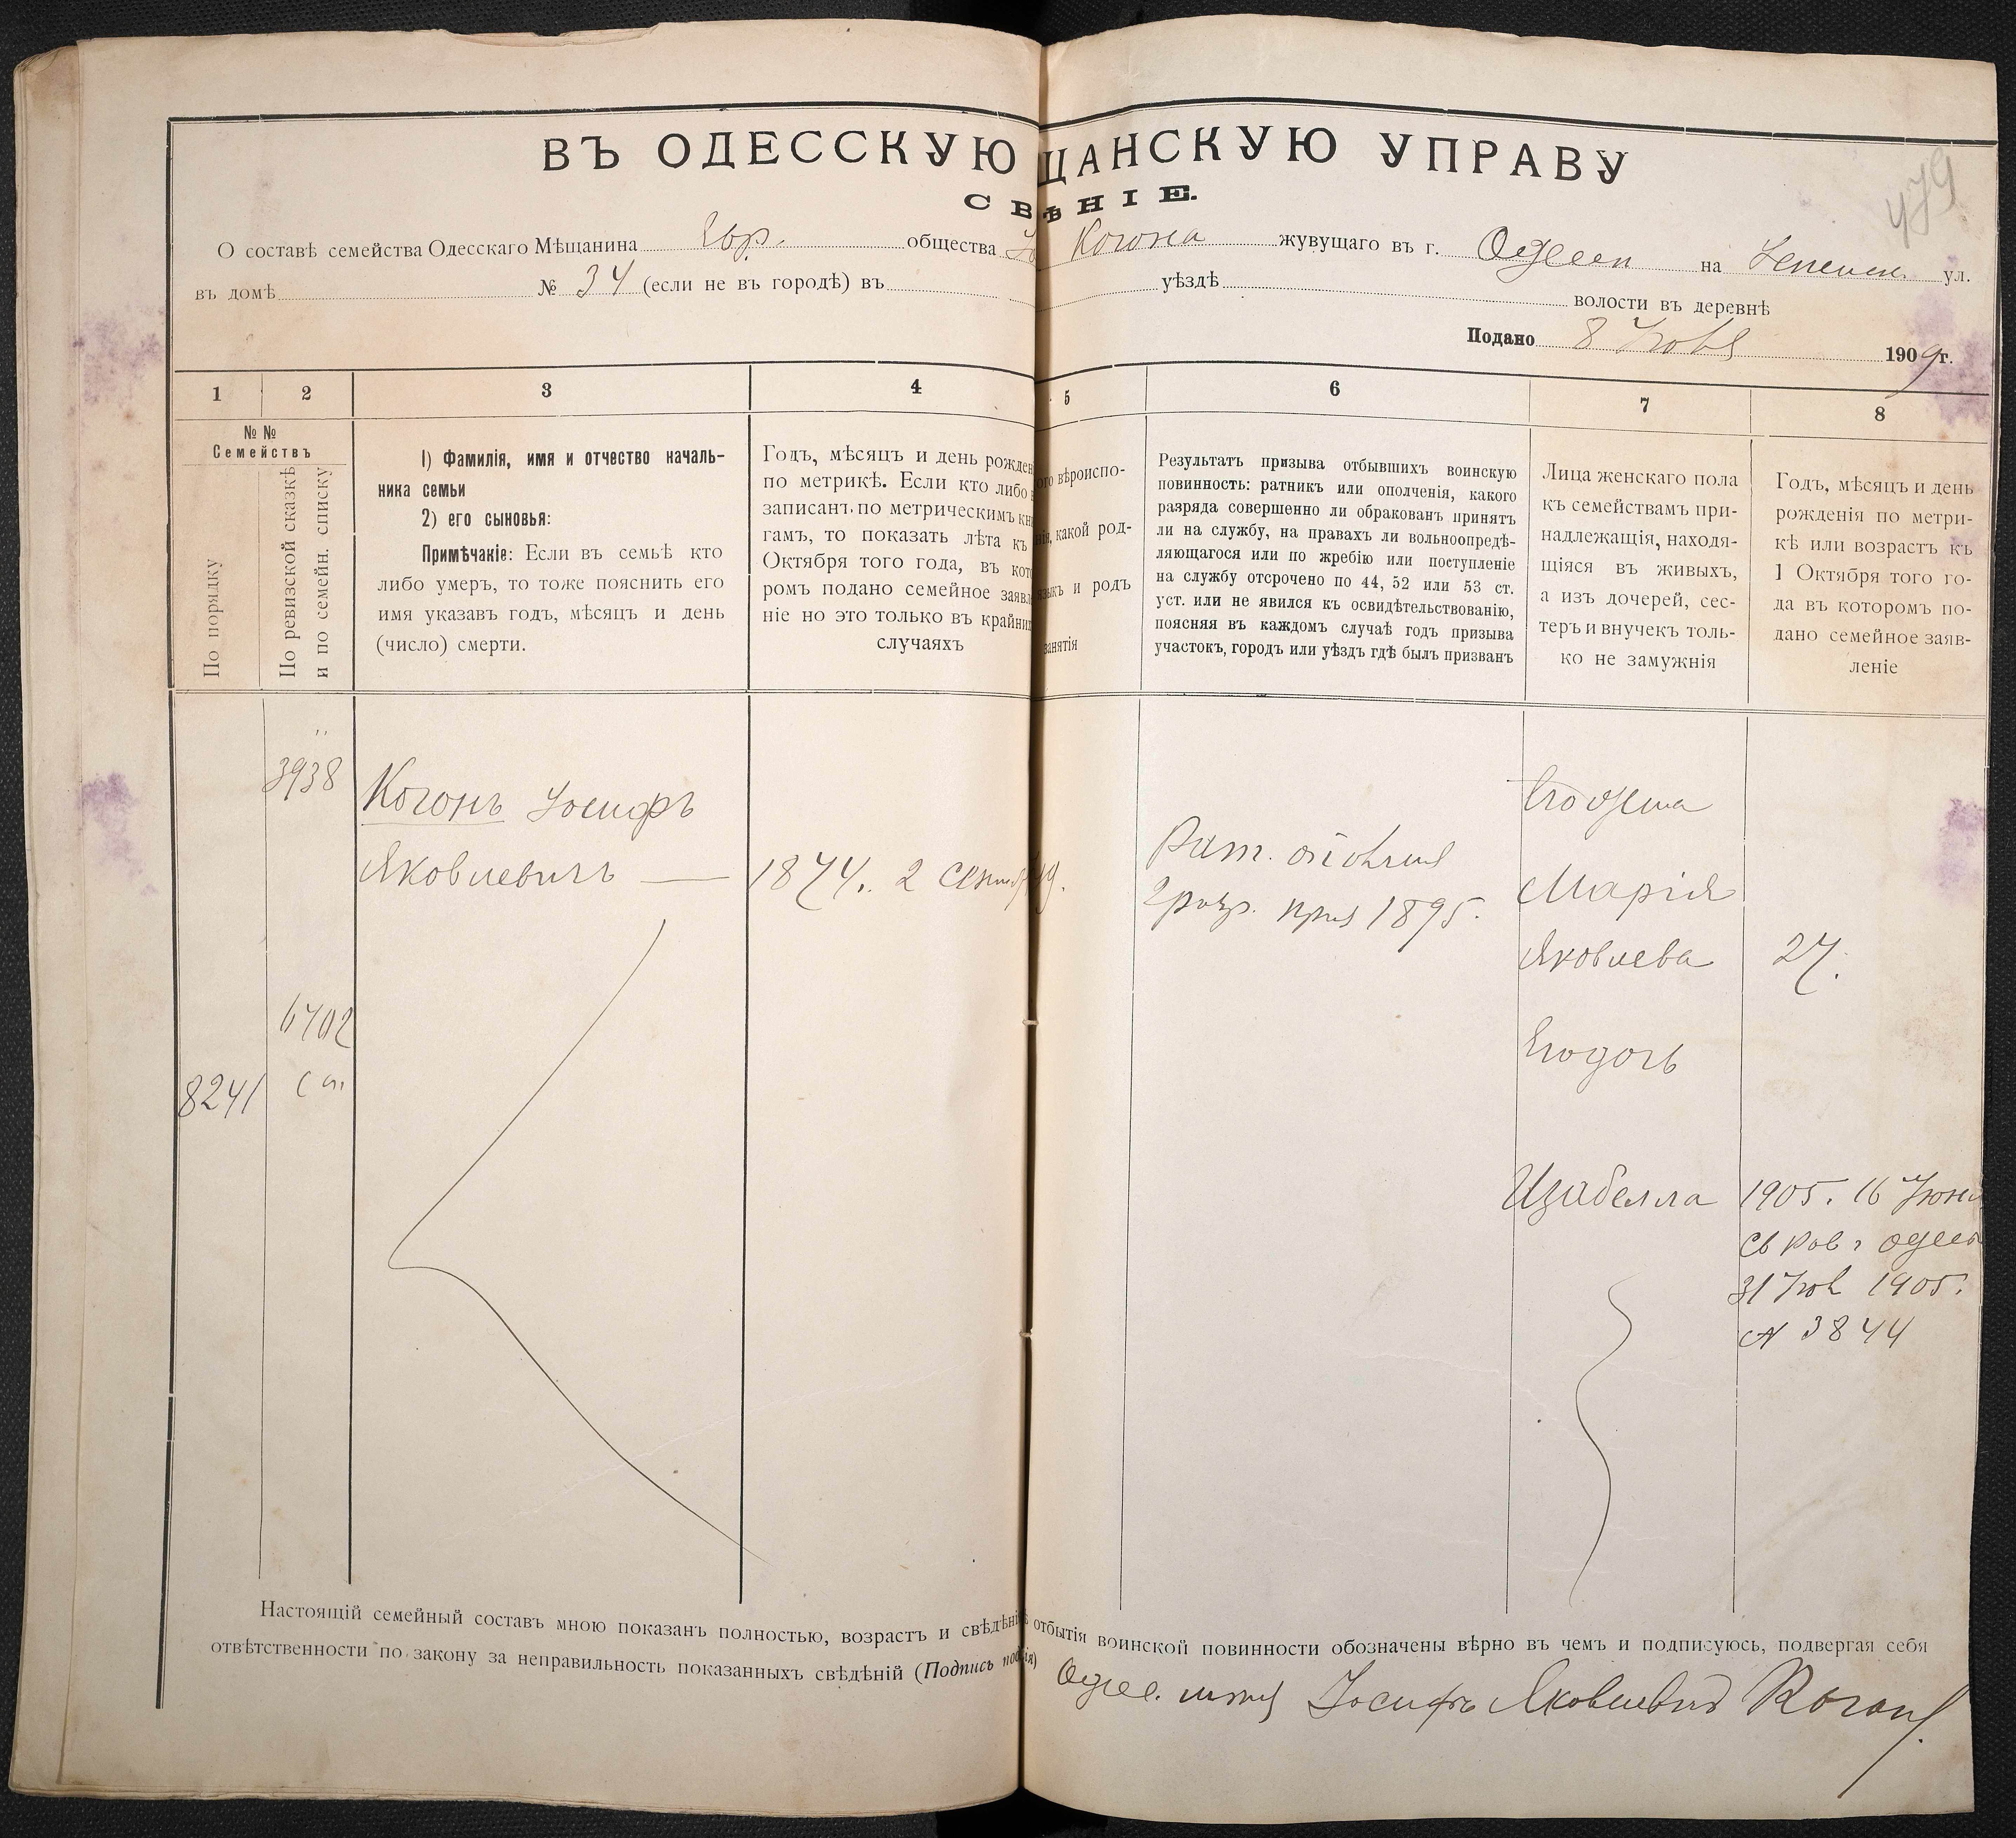 479
ВЪ ОДЕССКУЮ ЩАНСКУЮ УПРАВУ
СВѢНІЕ.
О составѣ семейства Одесскаго Мѣщанина Евр. общества Когона жувущаго въ г. Одессѣ на ул.
въ домѣ № 34 (если не въ городѣ) въ уѣздѣ волости въ деревнѣ
Подано 8 1909 г.
1 2 3 4 5 6 7 8
№ №
Семействъ
По порядку
По ревизской сказкѣ
и по семейн. списку
1) Фамилія, имя и отчество началь-
ника семьи
2) его сыновья:
Примѣчакіе: Если въ семьѣ кто
либо умеръ, то тоже пояснить его
имя указавъ годъ, мѣсяцъ и день
(число) смерти.
Годъ, мѣсяцъ и день рожден
по метрикѣ. Если кто либо
записанъ по метрическимъ кни
гамъ, то показать лѣта къ
Октября того года, въ кото
ромъ подано семейное заявл
ніе но это только въ крайни
случаяхъ
ого вѣроиспо-
нія, какой род-
языкъ и родъ
занятія
Результатъ призыва отбывшихъ воинскую
повинность: ратникъ или ополченія, какого
разряда совершенно ли обракованъ принятъ
ли на службу, на правахъ ли вольноопредѣ-
ляющагося или по жребію или поступленіе
на службу отсрочено по 44, 52 или 53 ст.
уст. или не явился къ освидѣтельствованію,
поясняя въ каждомъ случаѣ годъ призыва
участокъ, городъ или уѣздъ гдѣ былъ призванъ
Лица женскаго пола
къ семействамъ при-
надлежащія, находя-
щіяся въ живыхъ,
а изъ дочерей, сес-
теръ и внучекъ толь-
ко не замужнія
Годъ, мѣсяцъ и день
рожденія по метри-
кѣ или возрастъ къ
1 Октября того го-
да въ котором по-
дано семейное заяв-
леніе
3938
Когонъ Іосифъ
Яковлевичъ — 1874. 2 Сентяб
Рат. ополчен
2 разр. приз 1895.
Его жена
Марія
Яковлева 27.
6702
сп.
8241
Его дочь
Изабелла 1905. 16 Іюня
св рав г Одессы
31 1905.
№ 3844
Настоящій семейный составъ мною показанъ полностью, возрастъ и свѣдѣні отбытія воинской повинности обозначены вѣрно въ чемъ и подписуюсь, подвергая себя
отвѣтственности по закону за неправильность показанныхъ свѣдѣній (Подпись
Одес. мѣщ Іосифъ Яковлевич Коган